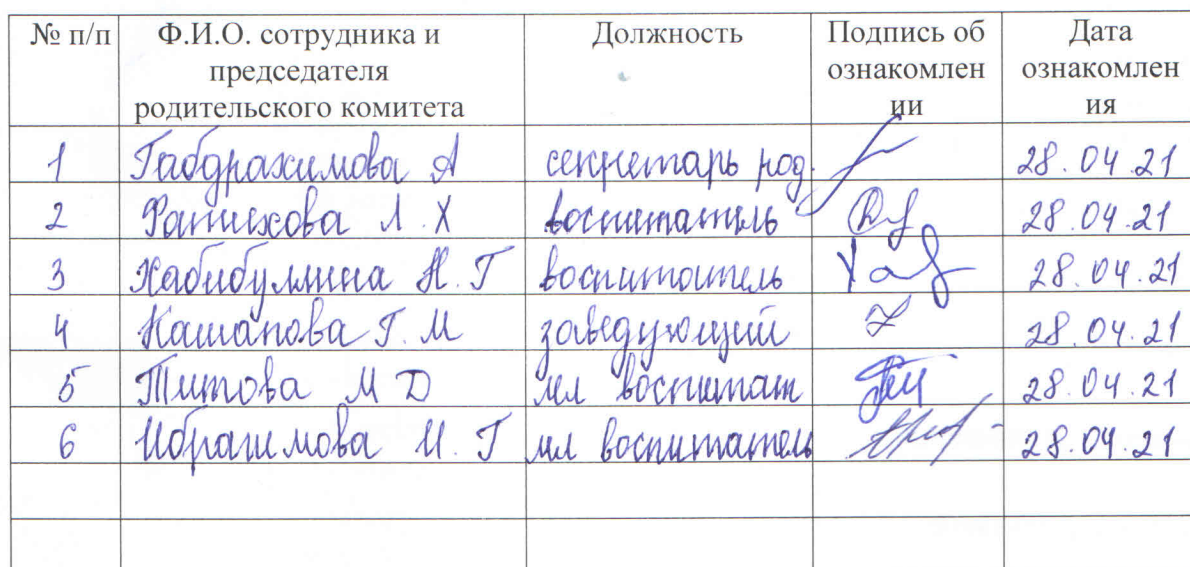 № п/п Ф.И.О. сотрудника и председателя родительского комитета Должность Подпись об ознакомлен ии Дата ознакомлен ия
1 Габдрахимова А секретарь род. 28.04.21
2 Фатихова Л.Х воспитатель 28.04.21
3 Хабибуллина Н.Г воспитатель 28.04.21
4 Кашапова Г.М заведующий 28.04.21
5 Титова М Д мл воспитат 28.04.21
6 Ибрагимова И.Г мл воспитатель 28.04.21